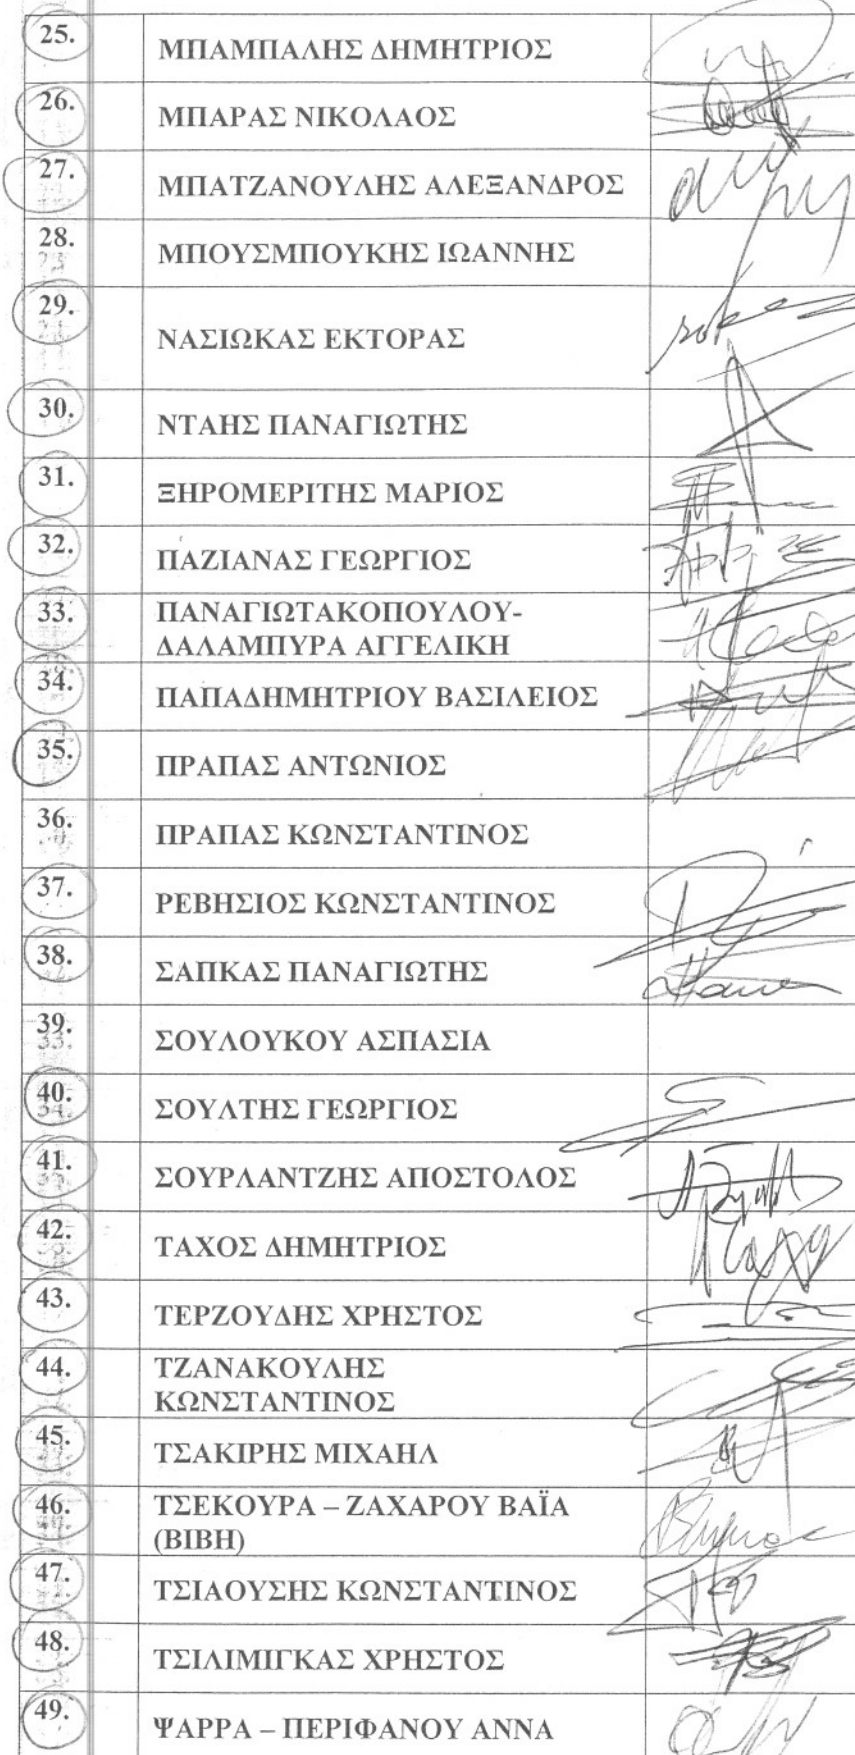 25. ΜΠΑΜΠΑΛΗΣ ΔΗΜΗΤΡΙΟΣ
26. ΜΠΑΡΑΣ ΝΙΚΟΛΑΟΣ
27. ΜΠΑΤΖΑΝΟΥΛΗΣ ΑΛΕΞΑΝΔΡΟΣ
28. ΜΠΟΥΣΜΠΟΥΚΗΣ ΙΩΑΝΝΗΣ
29. ΝΑΣΙΩΚΑΣ ΕΚΤΟΡΑΣ
30. ΝΤΑΗΣ ΠΑΝΑΓΙΩΤΗΣ
31. ΞΗΡΟΜΕΡΙΤΗΣ ΜΑΡΙΟΣ
32. ΠΑΖΙΑΝΑΣ ΓΕΩΡΓΙΟΣ
33. ΠΑΝΑΓΙΩΤΑΚΟΠΟΥΛΟΥ-
ΔΑΛΑΜΠΥΡΑ ΑΓΓΕΛΙΚΗ
34. ΠΑΠΑΔΗΜΗΤΡΙΟΥ ΒΑΣΙΛΕΙΟΣ
35. ΠΡΑΠΑΣ ΑΝΤΩΝΙΟΣ
36. ΠΡΑΠΑΣ ΚΩΝΣΤΑΝΤΙΝΟΣ
37. ΡΕΒΗΣΙΟΣ ΚΩΝΣΤΑΝΤΙΝΟΣ
38. ΣΑΠΚΑΣ ΠΑΝΑΓΙΩΤΗΣ
39. ΣΟΥΛΟΥΚΟΥ ΑΣΠΑΣΙΑ
40. ΣΟΥΛΤΗΣ ΓΕΩΡΓΙΟΣ
41. ΣΟΥΡΛΑΝΤΖΗΣ ΑΠΟΣΤΟΛΟΣ
42. ΤΑΧΟΣ ΔΗΜΗΤΡΙΟΣ
43. ΤΕΡΖΟΥΔΗΣ ΧΡΗΣΤΟΣ
44. ΤΖΑΝΑΚΟΥΛΗΣ
ΚΩΝΣΤΑΝΤΙΝΟΣ
45. ΤΣΑΚΙΡΗΣ ΜΙΧΑΗΛ
46. ΤΣΕΚΟΥΡΑ – ΖΑΧΑΡΟΥ ΒΑΪΑ
(ΒΙΒΗ)
47. ΤΣΙΑΟΥΣΗΣ ΚΩΝΣΤΑΝΤΙΝΟΣ
48. ΤΣΙΛΙΜΙΓΚΑΣ ΧΡΗΣΤΟΣ
49. ΨΑΡΡΑ – ΠΕΡΙΦΑΝΟΥ ΑΝΝΑ